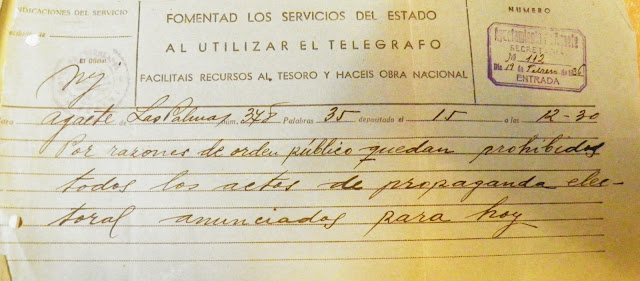 INDICACIONES DEL SERVICIO
FOMENTAD LOS SERVICIOS DEL ESTADO
AL UTILIZAR EL TELEGRAFO
FACILITAIS RECURSOS AL TESORO Y HACEIS OBRA NACIONAL
NUMERO
SECRET
Nº 112
Día 19 de Febrero de
ENTRADA
El Oficial
Agaete de Las Palmas núm. 348 Palabras 35 depositado el 15 a las 12-30
Por razones de orden público quedan prohibidos
todos los actos de propaganda elec-
toral anunciados para hoy